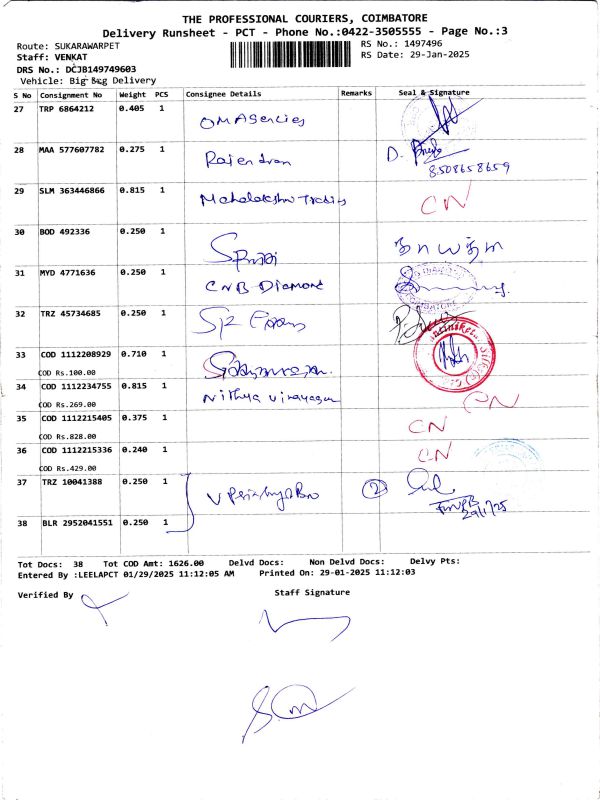 THE PROFESSIONAL COURIERS, COIMBATORE
Delivery Runsheet - PCT - Phone No.:0422-3505555 - Page No.:3
Route: SUKARAWARPET
RS No.: 1497496
Staff: VENKAT
RS Date: 29-Jan-2025
DRS No.: DCJB149749603
Vehicle: Big Bag Delivery
S No Consignment No Weight PCS Consignee Details Remarks Seal & Signature
27 TRP 6864212 0.405 1 OM Agencies
28 MAA 577607782 0.275 1 Rajendran D.
8508658659
29 SLM 363446866 0.815 1 Mahalakshmi Traders CN
30 BOD 492336 0.250 1
31 MYD 4771636 0.250 1 CNB Diamond
32 TRZ 45734685 0.250 1
33 COD 1112208929 0.710 1
COD Rs.100.00
34 COD 1112234755 0.815 1 Nithya Vinayagar CN
COD Rs.269.00
35 COD 1112215405 0.375 1 CN
COD Rs.828.00
36 COD 1112215336 0.240 1 CN
COD Rs.429.00
37 TRZ 10041388 0.250 1 2
29/1/25
38 BLR 2952041551 0.250 1
Tot Docs: 38 Tot COD Amt: 1626.00 Delvd Docs: Non Delvd Docs: Delvy Pts:
Entered By :LEELAPCT 01/29/2025 11:12:05 AM Printed On: 29-01-2025 11:12:03
Verified By Staff Signature